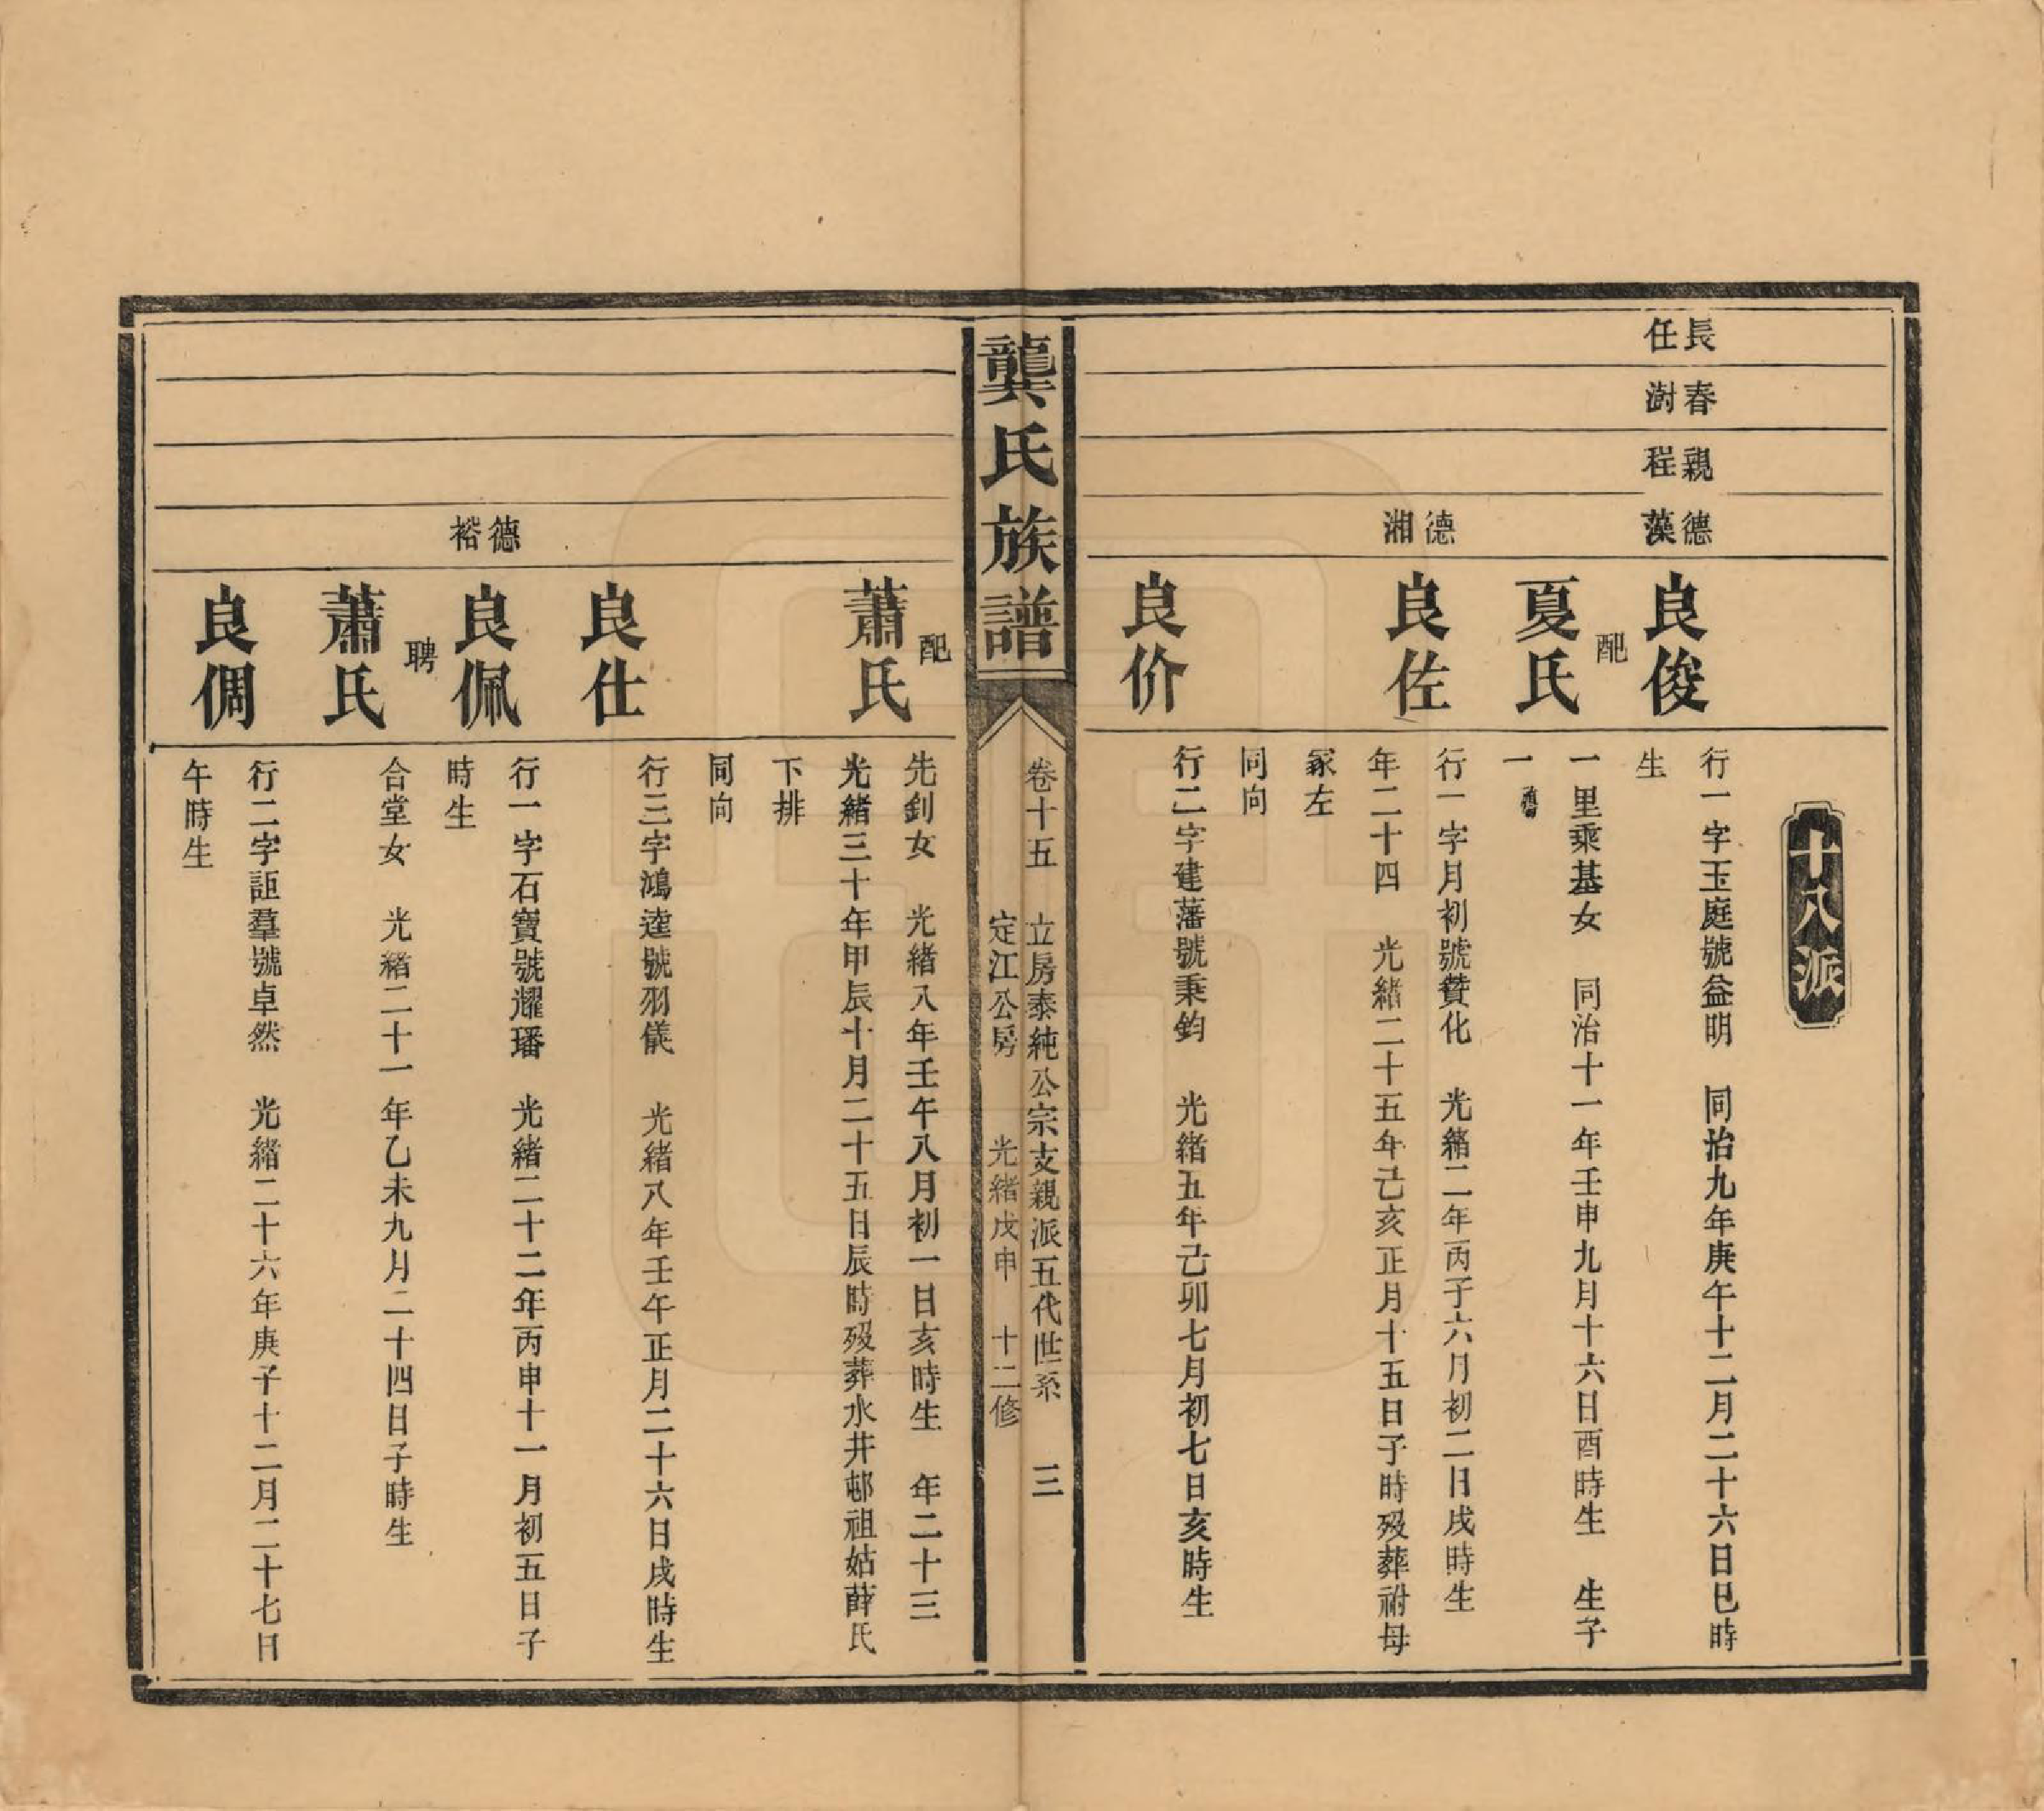 十八派
長任
春澍
親程
德藻
良俊
行一字玉庭號益明　同治九年庚午十二月二十六日巳時
生
配
夏氏
一里乘基女　同治十一年壬申九月十六日酉時生　生子
一
德湘
良佐
行一字月初號贊化　光緒二年丙子六月初二日戌時生
年二十四　光緒二十五年己亥正月十五日子時歿葬祔母
冢左
同向
良价
行二字建藩號秉鈞　光緒五年己卯七月初七日亥時生
龔氏族譜
卷十五　立房泰純公宗支親派五代世系　三
定江公房　光緒戊申　十二修
配
蕭氏
先釗女　光緒八年壬午八月初一日亥時生　年二十三
光緒三十年甲辰十月二十五日辰時歿葬水井邨祖姑薛氏
下排
同向
良仕
行三字鴻逵號羽儀　光緒八年壬午正月二十六日戌時生
德裕
良佩
行一字石寶號耀璠　光緒二十二年丙申十一月初五日子
時生
聘
蕭氏
合堂女　光緒二十一年乙未九月二十四日子時生
良倜
行二字詎羣號卓然　光緒二十六年庚子十二月二十七日
午時生